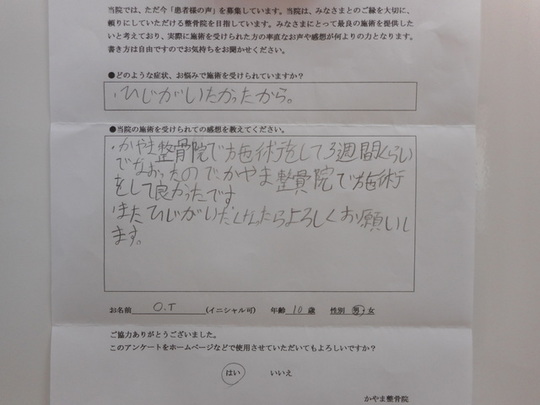 当院では、ただ今「患者様の声」を募集しています。当院は、みなさまとのご縁を大切に、
頼りにしていただける整骨院を目指しています。みなさまにとって最良の施術を提供した
いと考えており、実際に施術を受けられた方の率直なお声や感想が何よりの力となります。
書き方は自由ですのでお気持ちをお聞かせください。
●どのような症状、お悩みで施術を受けられていますか？
・ひじがいたかったから。
●当院の施術を受けられての感想を教えてください。
・かやま整骨院で施術をして3週間くらい
でなおったので、かやま整骨院で施術
をして良かったです
またひじがいたくなったらよろしくお願いし
ます。
お名前 O.T (イニシャル可) 年齢 10 歳 性別 男・女
ご協力ありがとうございました。
このアンケートをホームページなどで使用させていただいてもよろしいですか？
はい いいえ
かやま整骨院